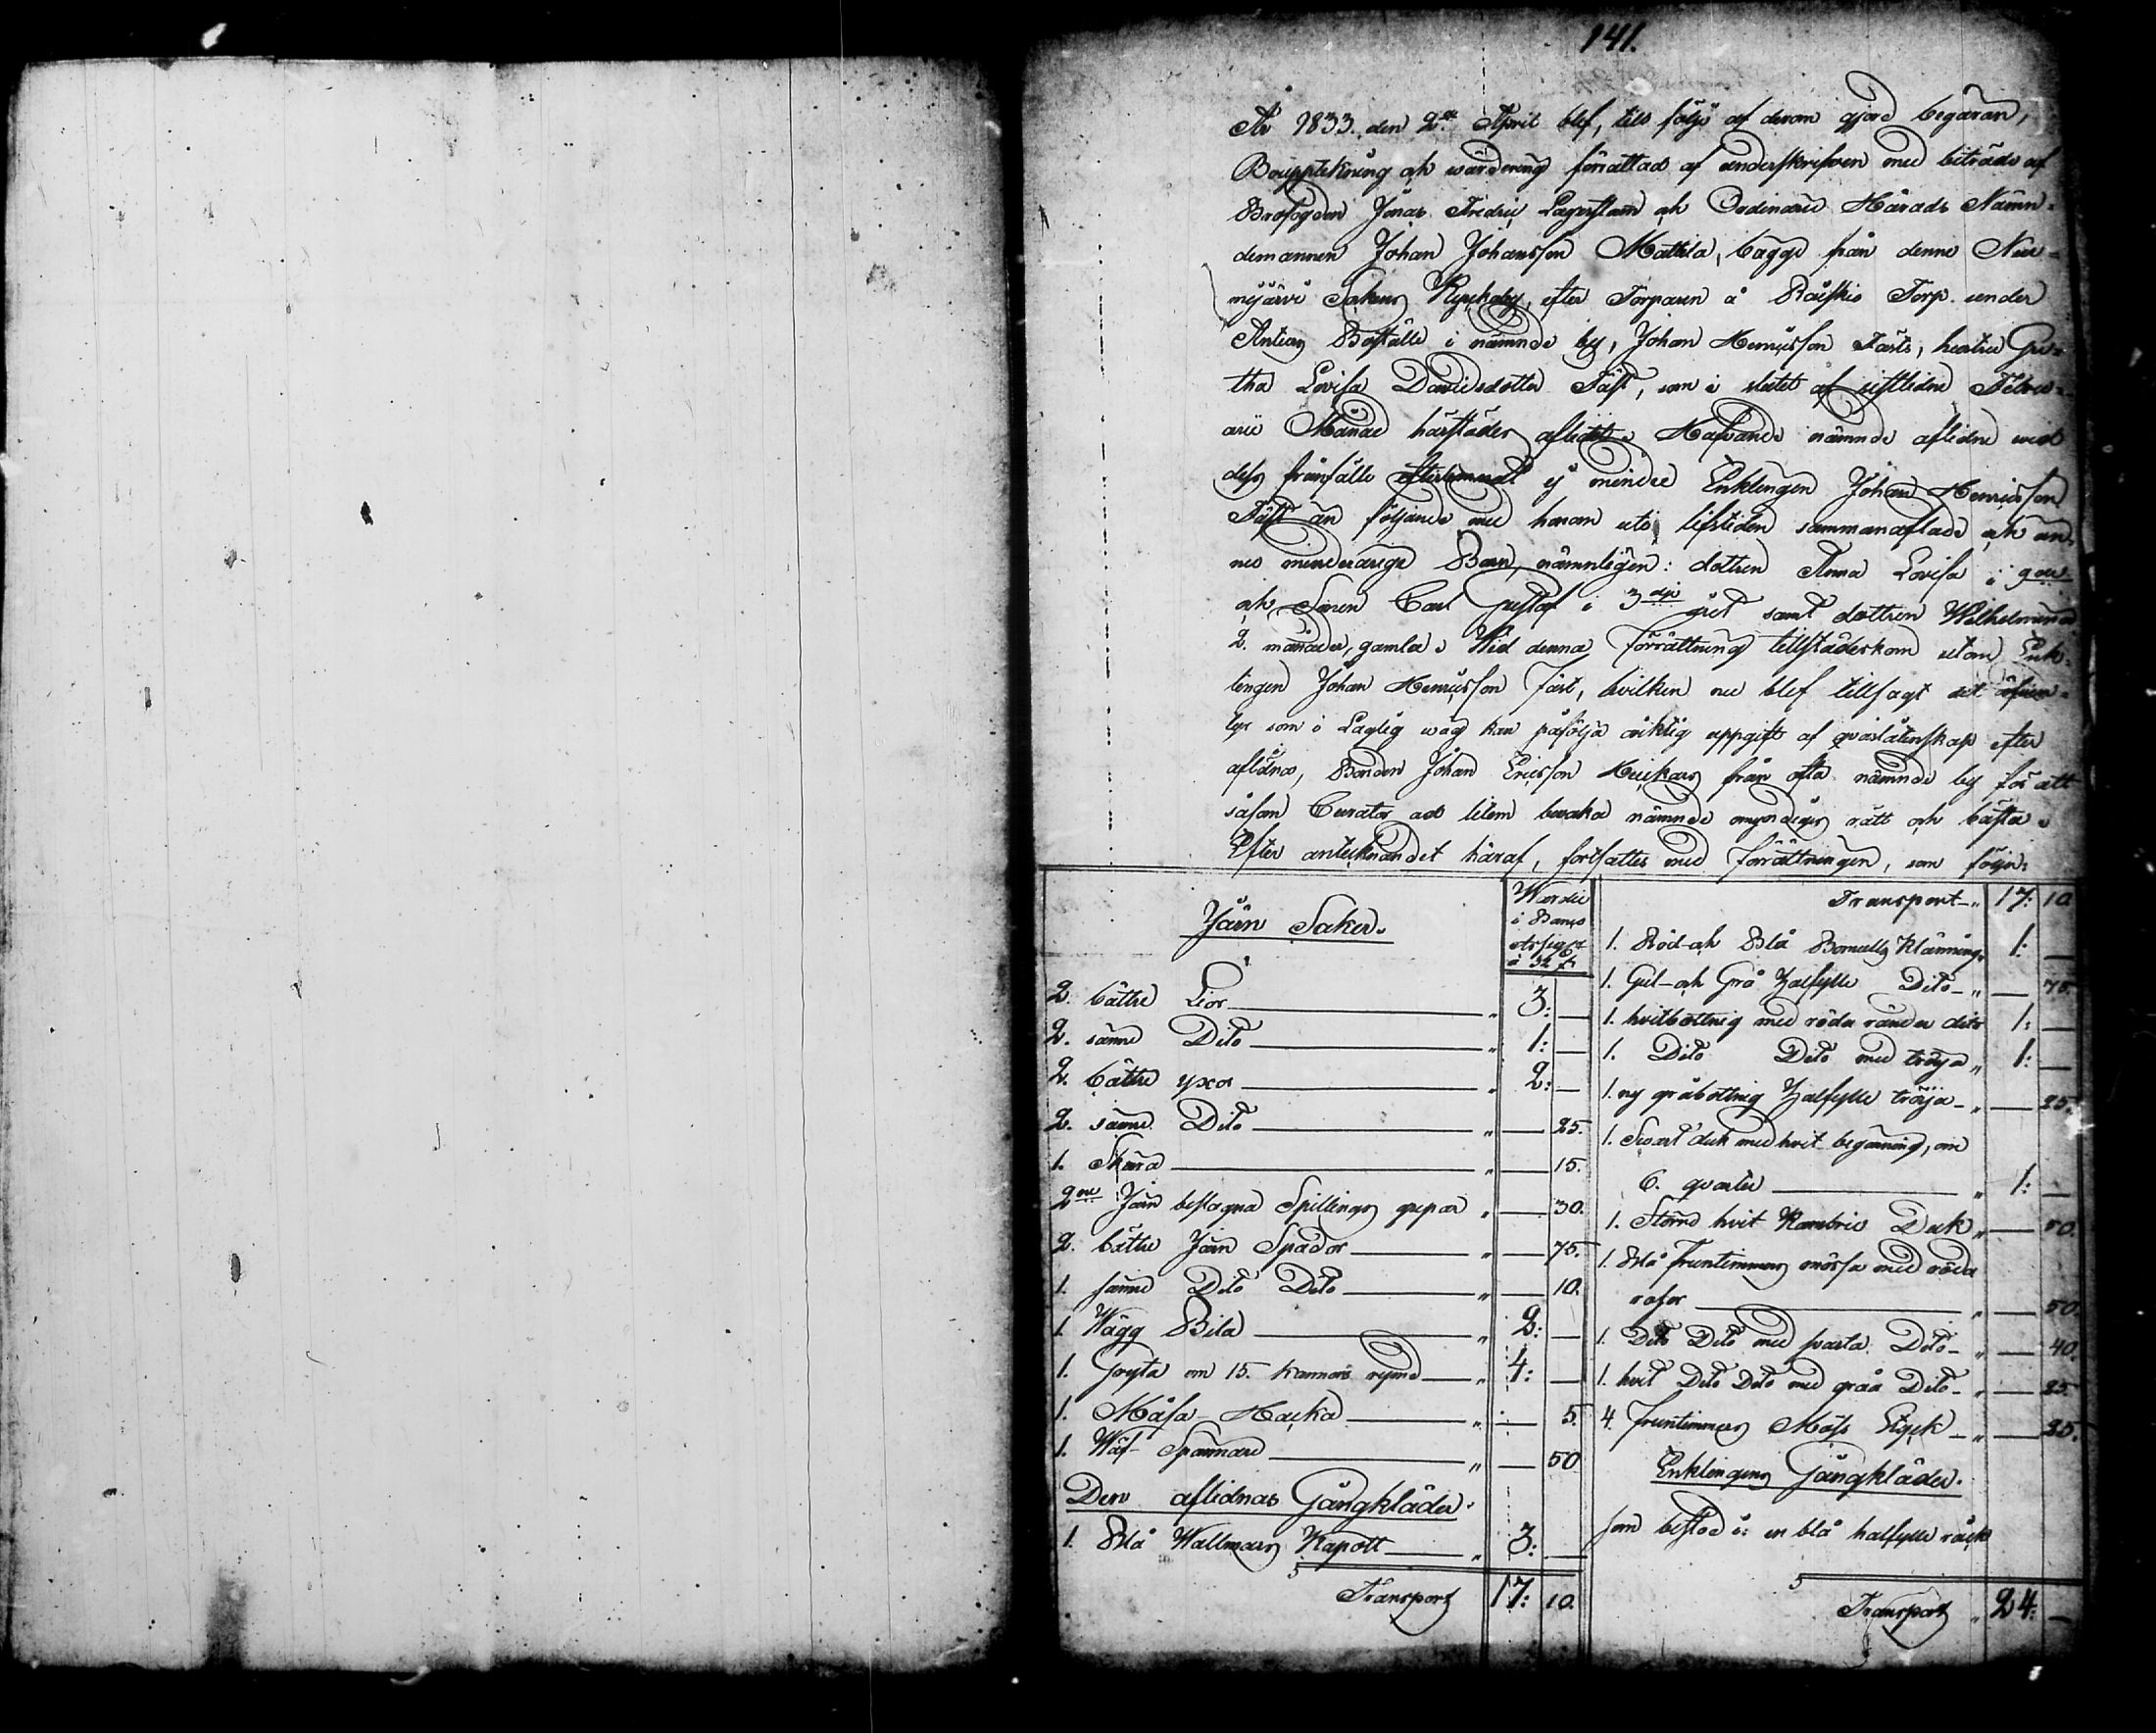 141.
År 1833. den 2:a April blef, till följe af derom gjord begäran,
Bouppteckning och wärdering förrättad af underskrifwen med biträde af
Brofogden Jonas Fredric Lagerstam och Ordinarie Härads Nämn=
demannen Johan Johansson Mattila, bägge från denne Nur=
mijärvi Sokens Kyrkoby, efter Torparen å Räiskio Torp under
Anttas Boställe i nämnde by, Johan Henricsson Fäst's, hustru Gre=
tha Lovisa Davidsdotter Fäst, som i slutet af sistliden Febru=
arii Månad härstädes aflidit. Hafvande nämnde aflidne wid
dess frånfälle efterlemnat ej mindre Enklingen Johan Henricsson
Fäst än följande med honom uti lifstiden sammanaflade och än=
nu minderåriga Barn, nämnligen: dottren Anna Lovisa i 9:de
och Sonen Carl Gustaf i 3:dje året samt dottren Wilhelmina
2. månader, gamla. Wid denna Förrättning tillstädeskom utom Enk=
lingen Johan Henricsson Fäst, hvilken nu blef tillsagt at
som i Laglig wäg kan påfölja riktig uppgift af qvarlåtenskap efter
aflidna, Bonden Johan Ericsson Heickas från ofta nämnde by för att
såsom Curator ad litem bevaka nämnde omyndigas rätt och bästa.
Efter antecknandet häraf, fortsattes med Förrättningen, som följer:
Järn Saker.
Wärdie i Banco Assign:r à 32 s:
2. bättre Liar " 3: —
2. sämre Dito " 1: —
2. bättre yxor " 2: —
2. sämre Dito " — 25.
1. Skära " — 15.
2:ne Järn beslagna Spillings grepar " — 30.
2. bättre Järn Spador " — 75.
1. sämre Dito Dito " — 10.
1. Wägg Bila " 2: —
1. Gryta om 15. kannors rymd " 4: —
1. Måsa-Hacka " — 5.
1. Wäf Spännare " — 50
Den aflidnas Gångkläder.
1. Blå Wallmars Kapott " 3: —
Transport 17: 10.
Transport " 17: 10
1. Röd och Blå Bomulls Klänning " 1: —
1. Gul- och Grå Halfylle Dito " — 75.
1. hvitbottnig med röda ränder dito 1: —
1. Dito Dito med tröja " 1: —
1. ny gråbottnig Halfylle tröja " — 25.
1. Svart duk med hvit begärning, om
6. qvarter " 1: —
1. Större hvit Kambric Duk " — 50.
1. Blå fruntimmers mössa med röda
rosor " — 50.
1. Dito Dito med svarta Dito " — 40.
1. hvit Dito Dito med gråa Dito " — 25
4 fruntimmers Möss Styck " — 35.
Enklingens Gångkläder.
som bestod i: en blå halfylle råck
Transport " 24: —